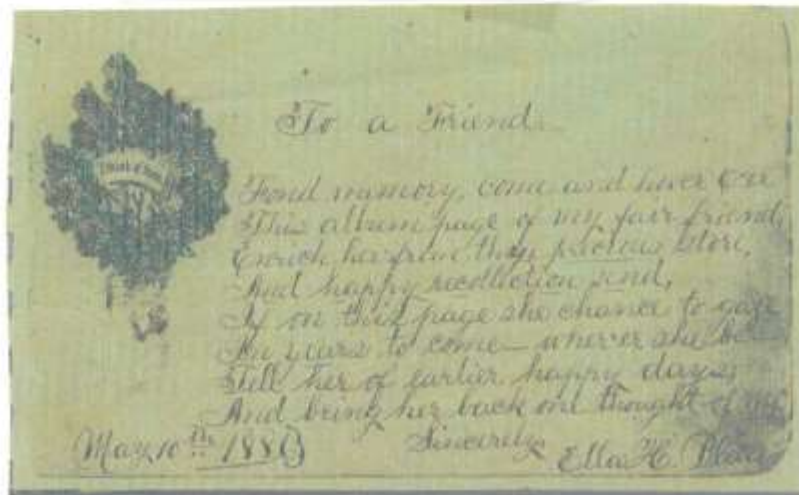 To a Friend.
Fond memory, come and hover o'er
This album page of my fair friend,
Enrich her from thy precious store,
And happy recollection send,
If on this page she chance to gaze
In years to come — wherever she be
Tell her of earlier happy days,
And bring her back one thought of me
May 10th 188
Sincerely
Ella H.